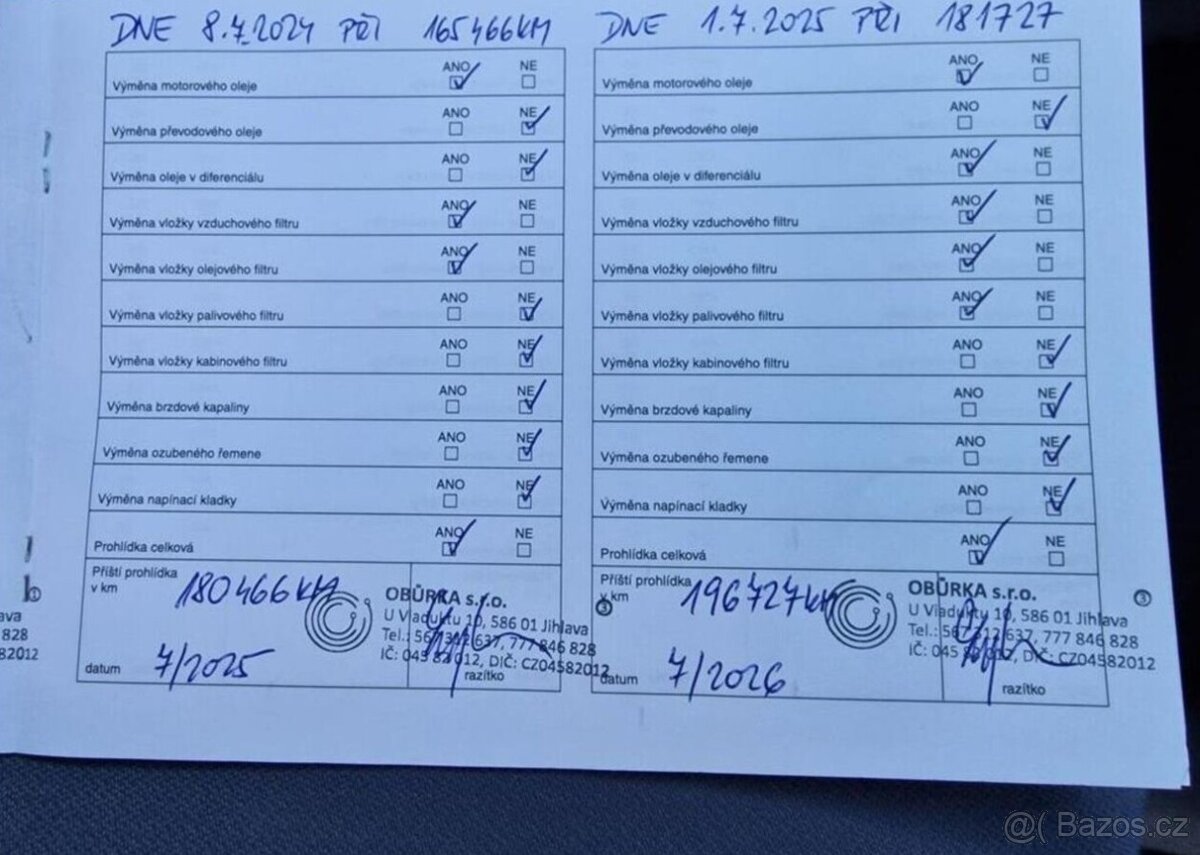 DNE 8.7.2024 PŘI 165466KM
ANO NE
Výměna motorového oleje
ANO NE
Výměna převodového oleje
ANO NE
Výměna oleje v diferenciálu
ANO NE
Výměna vložky vzduchového filtru
ANO NE
Výměna vložky olejového filtru
ANO NE
Výměna vložky palivového filtru
ANO NE
Výměna vložky kabinového filtru
ANO NE
Výměna brzdové kapaliny
ANO NE
Výměna ozubeného řemene
ANO NE
Výměna napínací kladky
ANO NE
Prohlídka celková
Příští prohlídka
v km
180466KM
OBŮRKA s.r.o.
U Viaduktu 10, 586 01 Jihlava
Tel.: 567 312 637, 777 846 828
IČ: 045 82 012, DIČ: CZ04582012
datum 7/2025
razítko
DNE 1.7.2025 PŘI 181727
ANO NE
Výměna motorového oleje
ANO NE
Výměna převodového oleje
ANO NE
Výměna oleje v diferenciálu
ANO NE
Výměna vložky vzduchového filtru
ANO NE
Výměna vložky olejového filtru
ANO NE
Výměna vložky palivového filtru
ANO NE
Výměna vložky kabinového filtru
ANO NE
Výměna brzdové kapaliny
ANO NE
Výměna ozubeného řemene
ANO NE
Výměna napínací kladky
ANO NE
Prohlídka celková
Příští prohlídka
v km
196727KM
OBŮRKA s.r.o.
U Viaduktu 10, 586 01 Jihlava
Tel.: 567 312 637, 777 846 828
IČ: 045 82 012, DIČ: CZ04582012
datum 7/2026
razítko
3
3
ava
828
82012
@( Bazos.cz